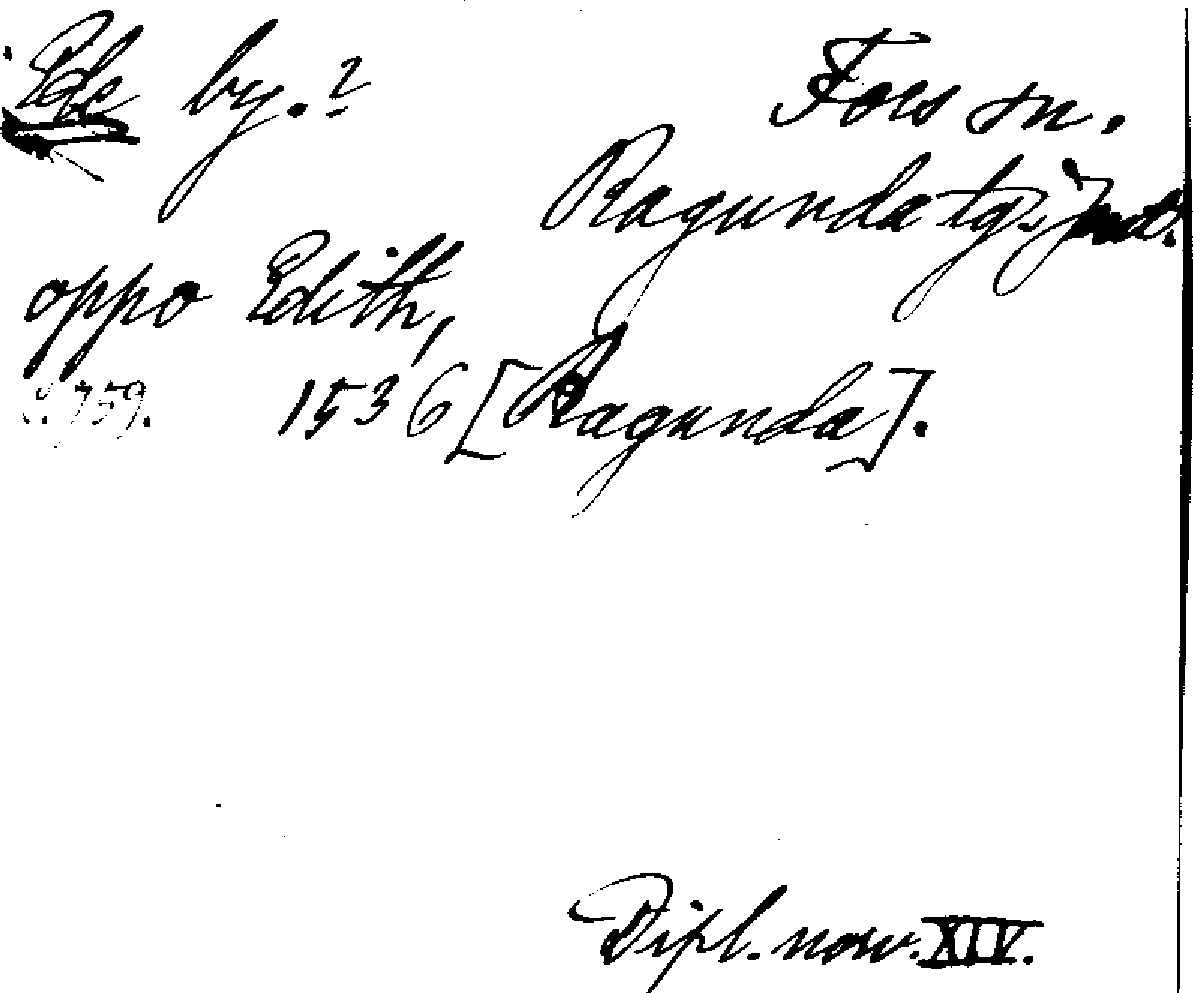 Ede by.?
Fors sn.
Ragunda tg. Jmtl.
oppo Edith,
s. 759. 1536 [Ragunda].
Dipl. norv. XIV.